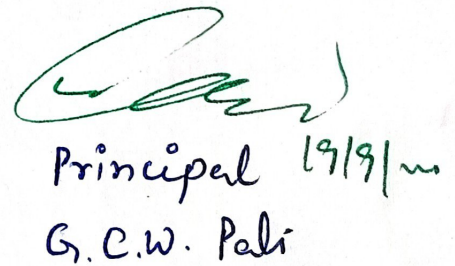 Principal 19/9/
G.C.W. Pali